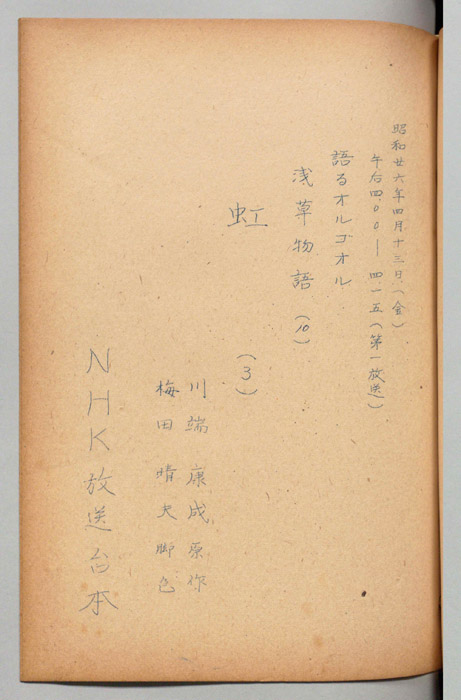 昭和廿六年四月十三日(金)
午后四.〇〇―四.一五(第一放送)
語るオルゴオル
浅草物語(10)
虹(3)
川端康成原作
梅田晴夫脚色
NHK放送台本